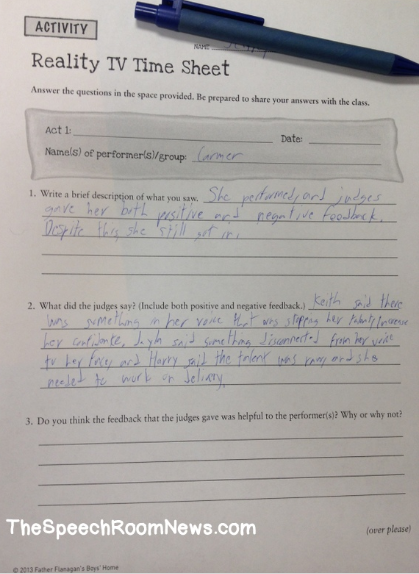 ACTIVITY
NAME
Reality TV Time Sheet
Answer the questions in the space provided. Be prepared to share your answers with the class.
Act 1:
Date:
Name(s) of performer(s)/group: Carmer
1. Write a brief description of what you saw. She performed, and judges
gave her both positive and negative feedback.
Despite this she still got in.
2. What did the judges say? (Include both positive and negative feedback.) Keith said there
was something in her voice that was stopping her
her confidante, said something disconnected from her voice
to her face, and Harry said the talent was and she
needed to work on delivary
3. Do you think the feedback that the judges gave was helpful to the performer(s)? Why or why not?
TheSpeechRoomNews.com
(over please)
© 2013 Father Flanagan's Boys' Home